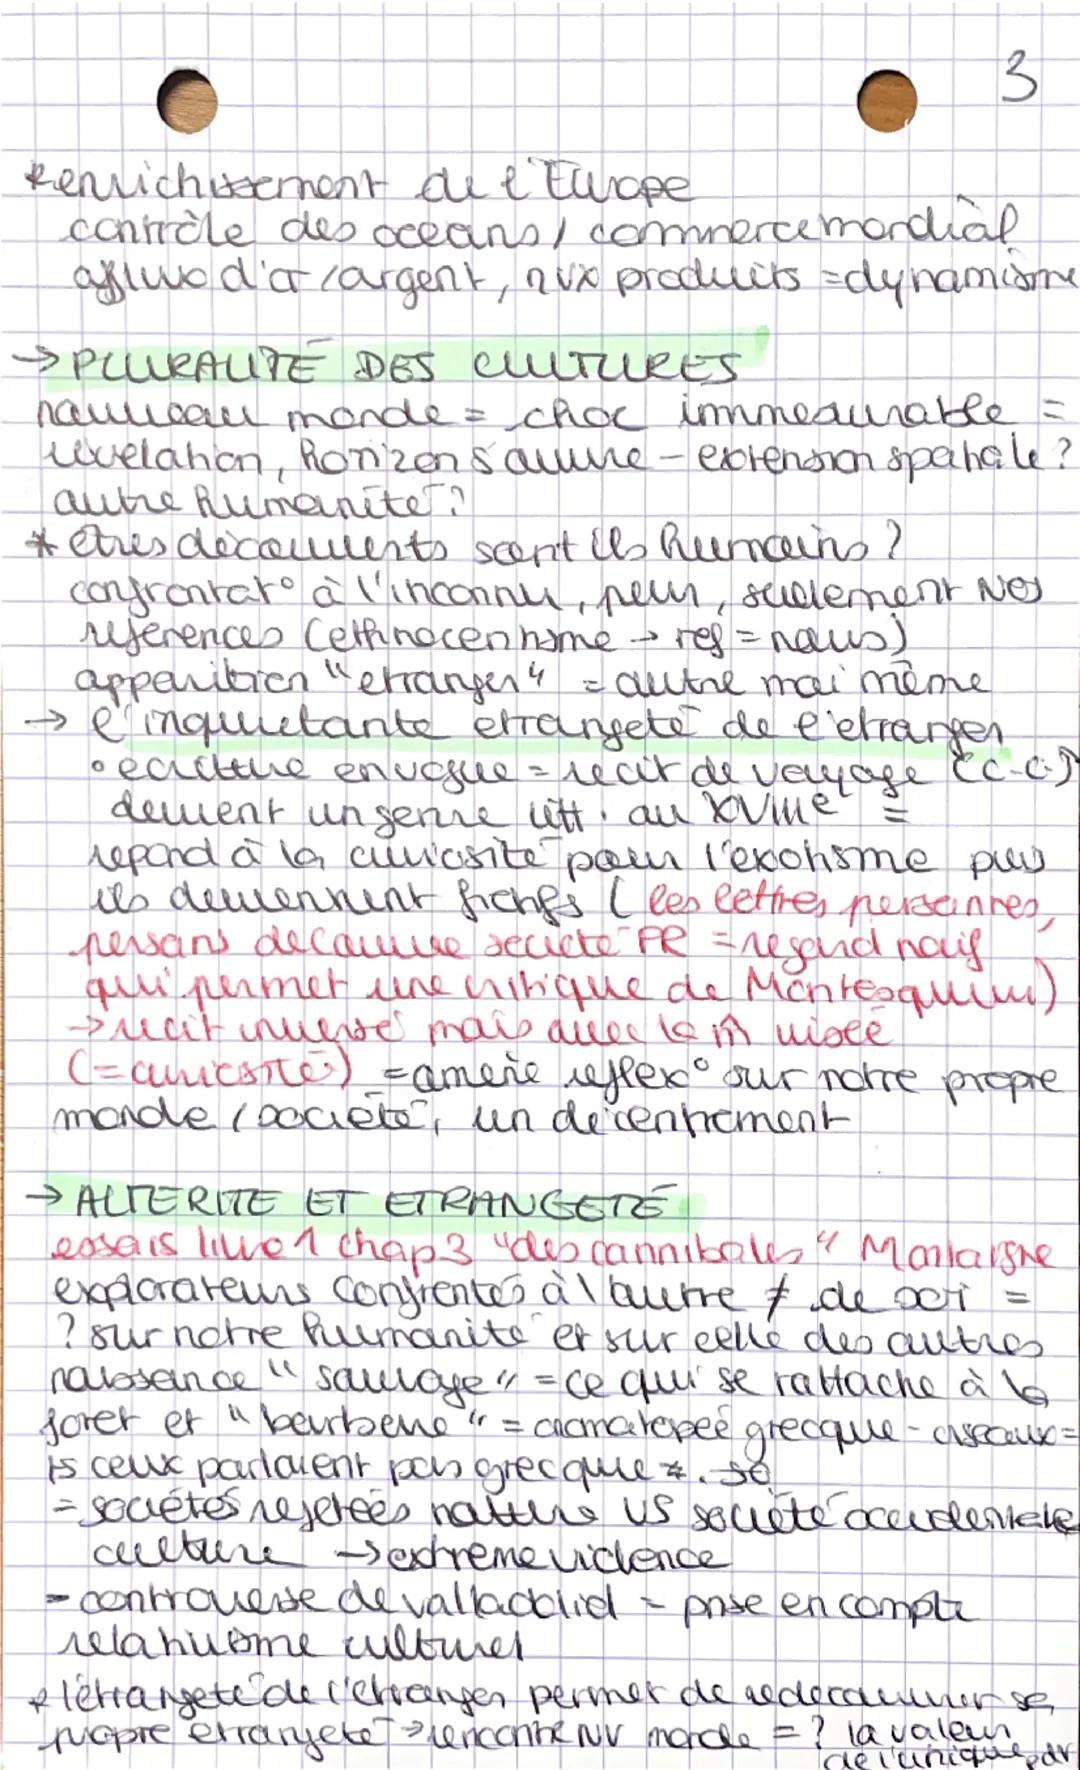 3
*enrichissement de l'Europe
contrôle des océans / commerce mondial
afflux d'or / argent, nvx produits = dynamisme
→ PLURALITÉ DES CULTURES
nouveau monde = choc immesurable =
révélation, horizon s'ouvre - extension spatiale ?
autre humanité ?
* êtres découverts sont ils humains ?
confrontat° à l'inconnu, peur, seulement NOS
références (ethnocentrisme → ref = nous)
apparition "etranger" = autre moi même
→ l'inquiétante etrangeté de l'etranger
• ecriture en vogue = recit de voyage (C.C.)
devient un genre litt. au XVIIIe =
repond à la curiosité pour l'exotisme puis
ils deviennent fictifs (les lettres persannes,
persans découvre société FR = regard naif
qui permet une critique de Montesquieu)
→ récit inversé mais avec la m̂ visée
(= curiosité) = amène reflex° sur notre propre
monde / société, un décentrement
→ ALTERITE ET ETRANGETÉ
essais livre 1 chap 3 "des cannibales" Montaigne
explorateurs confrontés à l'autre ≠ de soi =
? sur notre humanité et sur celle des autres
naissance "sauvage" = ce qui se rattache à la
foret et "barbare" = onomatopée grecque - oiseaux =
ts ceux parlaient pas grecque
= sociétés rejetées nature VS société occidentale
culture → extreme violence
- controverse de valladolid - prise en compte
relativisme culturel
* l'étrangeté de l'étranger permet de redécouvrir sa
propre etrangeté → rencontre NV monde = ? la valeur
de l'unique par